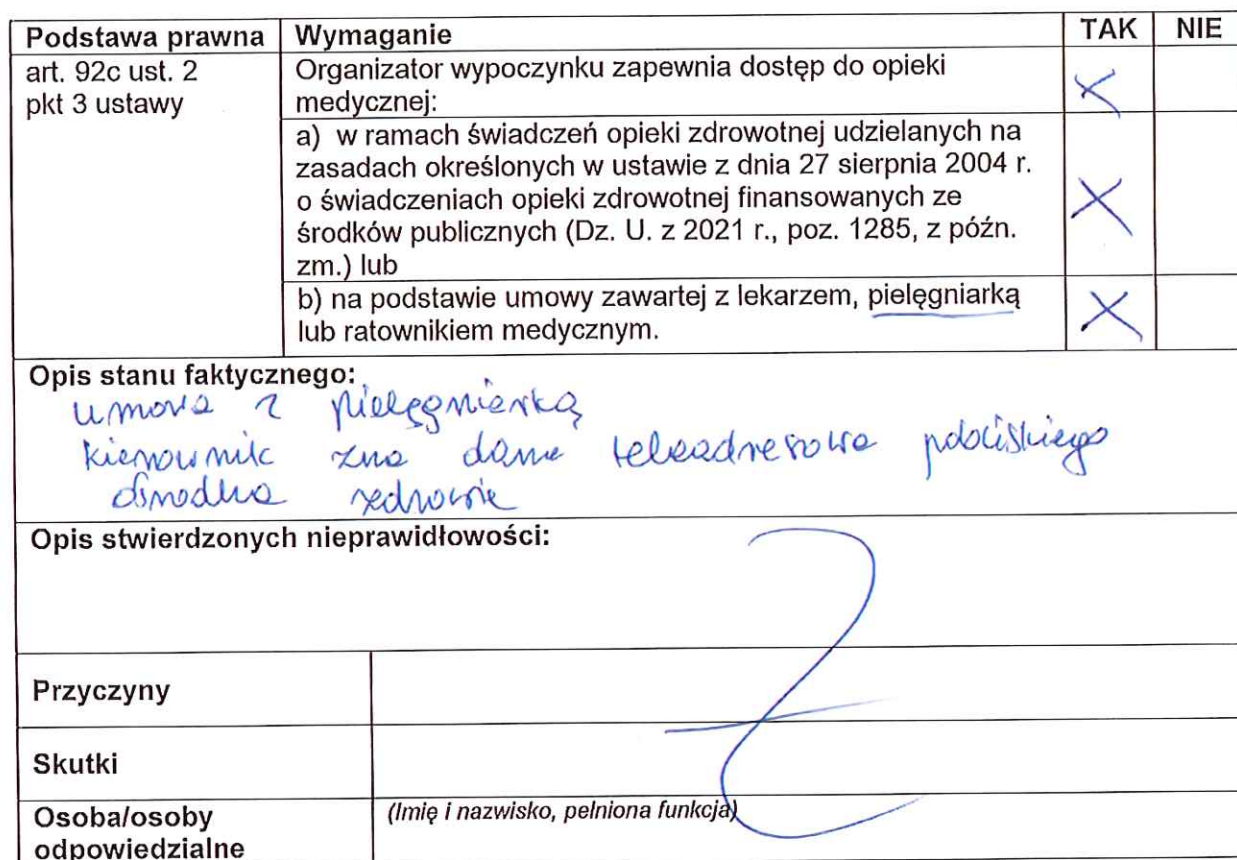 Podstawa prawna Wymaganie TAK NIE
art. 92c ust. 2
pkt 3 ustawy
Organizator wypoczynku zapewnia dostęp do opieki
medycznej: X
a) w ramach świadczeń opieki zdrowotnej udzielanych na
zasadach określonych w ustawie z dnia 27 sierpnia 2004 r.
o świadczeniach opieki zdrowotnej finansowanych ze X
środków publicznych (Dz. U. z 2021 r., poz. 1285, z późn.
zm.) lub
b) na podstawie umowy zawartej z lekarzem, pielęgniarką
lub ratownikiem medycznym. X
Opis stanu faktycznego:
umowa z pielęgniarką
kierownik zna dane teleadresowe pobliskiego
ośrodka zdrowia
Opis stwierdzonych nieprawidłowości:
Przyczyny
Skutki
Osoba/osoby
odpowiedzialne
(Imię i nazwisko, pełniona funkcja)